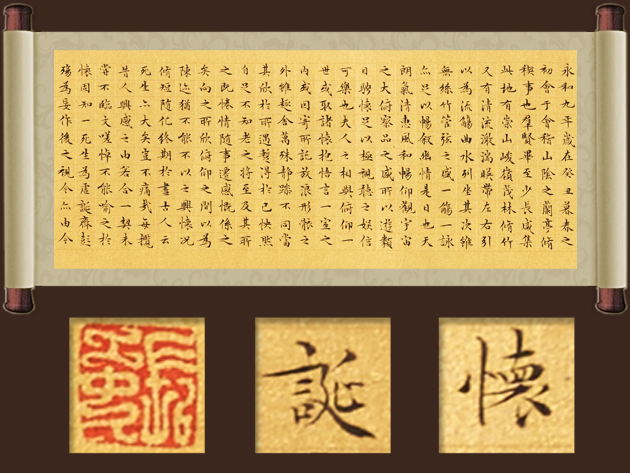 永和九年歲在癸丑暮春之
初會于會稽山陰之蘭亭脩
稧事也群賢畢至少長咸集
此地有崇山峻嶺茂林脩竹
又有清流激湍暎帶左右引
以為流觴曲水列坐其次雖
無絲竹管弦之盛一觴一詠
亦足以暢叙幽情是日也天
朗氣清惠風和暢仰觀宇宙
之大俯察品之盛所以遊類
目騁懷足以極視聽之娛信
可樂也夫人之相與俯仰一
世或取諸懷抱悟言一室之
內或因寄所託放浪形骸之
外雖趣舍萬殊靜躁不同當
其欣於所遇蹔得於己怏然
自足不知老之將至及其所
之既惓情隨事遷感慨係之
矣向之所欣俛仰之間以為
陳迹猶不能不以之興懷況
脩短隨化終期於盡古人云
死生亦大矣豈不痛哉每攬
昔人興感之由若合一契未
嘗不臨文嗟悼不能喻之於
懷固知一死生為虛誕齊彭
殤為妄作後之視今亦由今
懷
誕